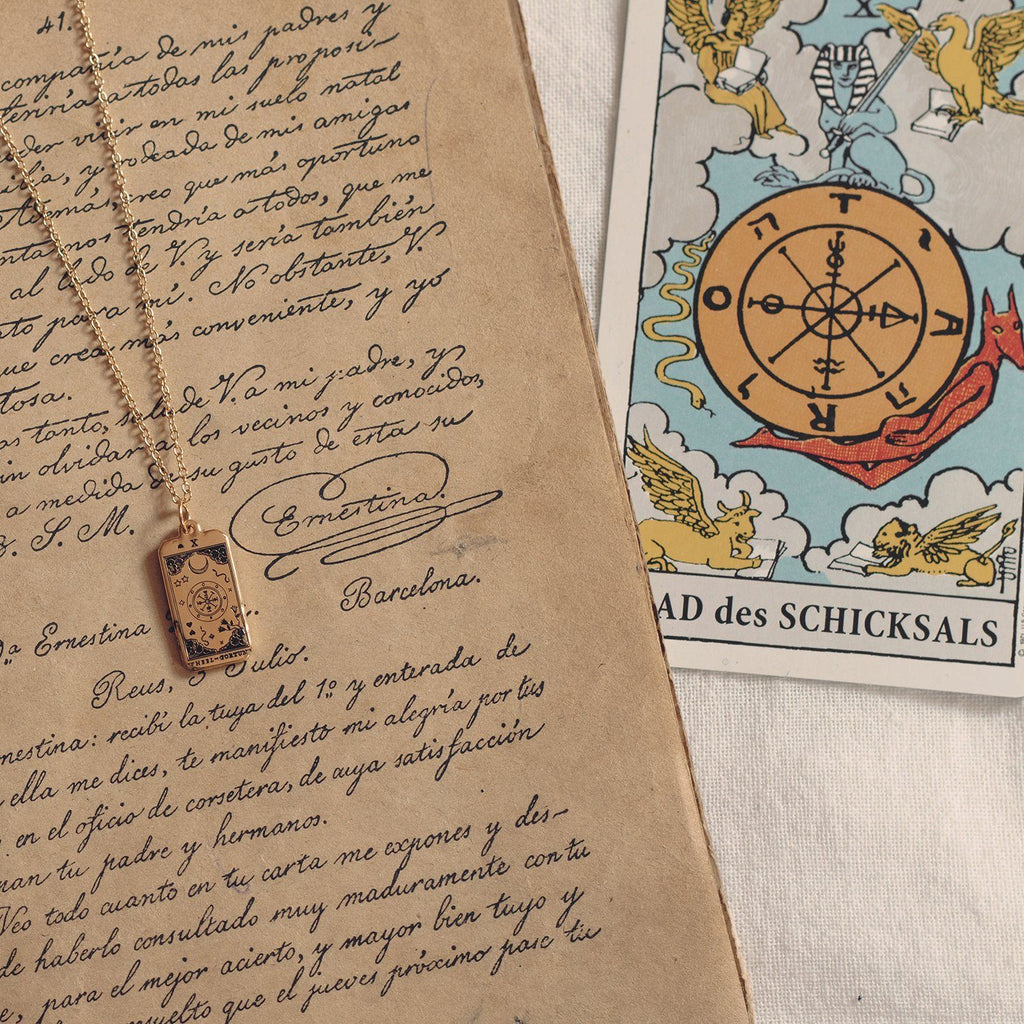 41.
compañía de mis padres y
a todas las proposi-
vivir en mi suelo natal
y rodeada de mis amigas
Además, creo que más oportuno
tendría a todos, que me
al lado de V. y sería también
para mí. No obstante, V.
que crea más conveniente, y yo
tanto, salude V. a mi padre, y
olvidar a los vecinos y conocidos,
a medida de su gusto de esta su
S. M.
Ernestina.
Barcelona.
Ernestina
Reus, 3 Julio.
recibí la tuya del 1.º y enterada de
ella me dices, te manifiesto mi alegría por tus
en el oficio de corsetera, de cuya satisfacción
tu padre y hermanos.
Veo todo cuanto en tu carta me expones y des-
de haberlo consultado muy maduramente con tu
para el mejor acierto, y mayor bien tuyo y
que el jueves próximo pase tu
X
WHEEL-FORTUNE
X
T
A
R
O
י
ה
ו
ה
AD des SCHICKSALS